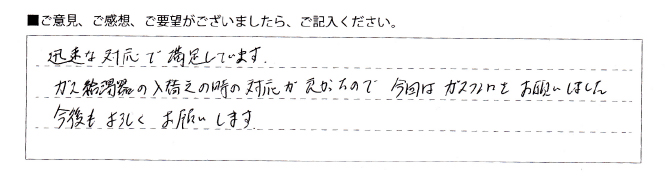 ■ご意見、ご感想、ご要望がございましたら、ご記入ください。
迅速な対応で満足しています.
ガス給湯器の入替えの時の対応が良かったので 今回はガスフロをお願いしました
今後もよろしくお願いします